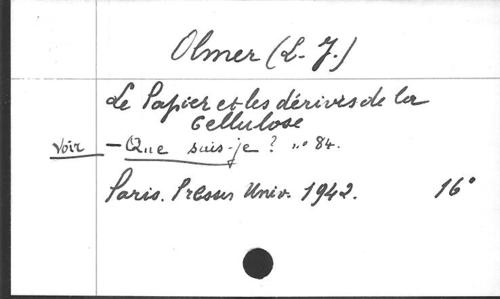 Olmer (L. J.)
Le Papier et les dérivés de la
Cellulose
Voir — Que sais-je ? n° 84.
Paris. Presses Univ. 1942. 16°